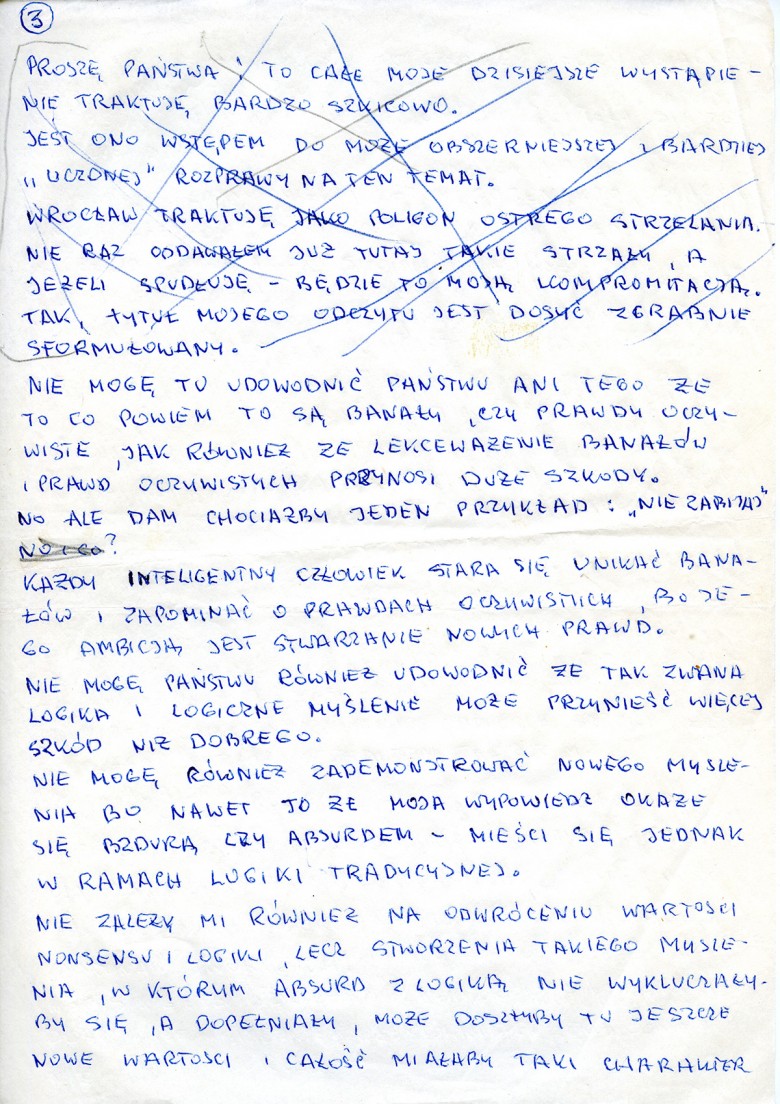 3
PROSZĘ PAŃSTWA! TO CAŁE MOJE DZISIEJSZE WYSTĄPIE-
NIE TRAKTUJĘ BARDZO SZKICOWO.
JEST ONO WSTĘPEM DO MOŻE OBSZERNIEJSZEJ I BARDZIEJ
„UCZONEJ" ROZPRAWY NA TEN TEMAT.
WROCŁAW TRAKTUJĘ JAKO POLIGON OSTREGO STRZELANIA.
NIE RAZ ODDAWAŁEM JUŻ TUTAJ TAKIE STRZAŁY, A
JEŻELI SPUDŁUJĘ – BĘDZIE TO MOJĄ KOMPROMITACJĄ.
TAK, TYTUŁ MOJEGO ODCZYTU JEST DOSYĆ ZGRABNIE
SFORMUŁOWANY.
NIE MOGĘ TU UDOWODNIĆ PAŃSTWU ANI TEGO ŻE
TO CO POWIEM TO SĄ BANAŁY, CZY PRAWDY OCZY-
WISTE, JAK RÓWNIEŻ ŻE LEKCEWAŻENIE BANAŁÓW
I PRAWD OCZYWISTYCH PRZYNOSI DUŻE SZKODY.
NO ALE DAM CHOCIAŻBY JEDEN PRZYKŁAD: „NIE ZABIJAJ"
NO I CO?
KAŻDY INTELIGENTNY CZŁOWIEK STARA SIĘ UNIKAĆ BANA-
ŁÓW I ZAPOMINAĆ O PRAWDACH OCZYWISTYCH, BO JE-
GO AMBICJĄ JEST STWARZANIE NOWYCH PRAWD.
NIE MOGĘ PAŃSTWU RÓWNIEŻ UDOWODNIĆ ŻE TAK ZWANA
LOGIKA I LOGICZNE MYŚLENIE MOŻE PRZYNIEŚĆ WIĘCEJ
SZKÓD NIŻ DOBREGO.
NIE MOGĘ RÓWNIEŻ ZADEMONSTROWAĆ NOWEGO MYSLE-
NIA BO NAWET TO ŻE MOJA WYPOWIEDZ OKAŻE
SIĘ BZDURĄ CZY ABSURDEM – MIEŚCI SIĘ JEDNAK
W RAMACH LOGIKI TRADYCYJNEJ.
NIE ZALEŻY MI RÓWNIEŻ NA ODWRÓCENIU WARTOSCI
NONSENSU I LOGIKI, LECZ STWORZENIA TAKIEGO MYSLE-
NIA, W KTÓRYM ABSURD Z LOGIKĄ NIE WYKLUCZAŁY-
BY SIĘ, A DOPEŁNIAŁY, MOŻE DOSZŁYBY TU JESZCZE
NOWE WARTOSCI I CAŁOŚĆ MIAŁABY TAKI CHARAKTER